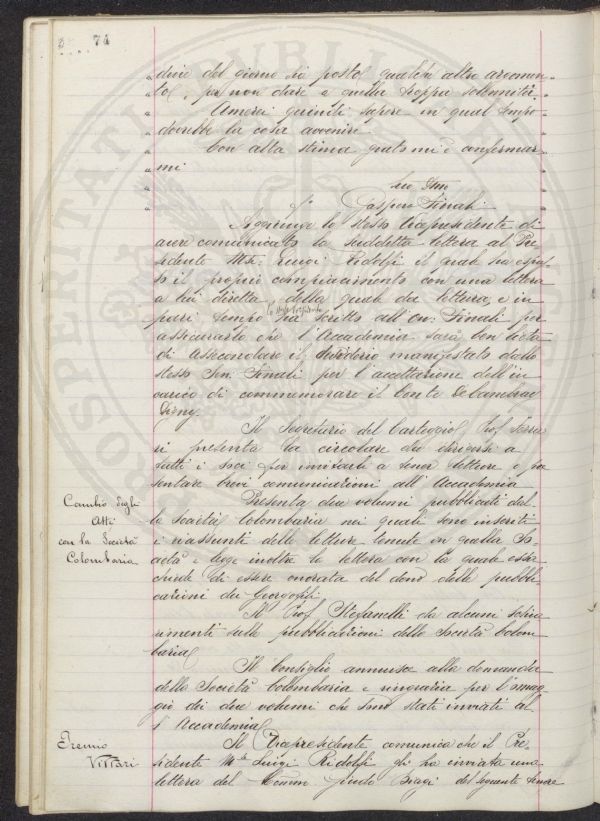 74
„ dine del giorno sia posto qualche altro argomen- „
„ to, per non dare a quella troppa solennità. „
„ Amerei quindi sapere in qual tempo „
„ dovrebbe la cosa avvenire. „
„ Con alta stima godo mi è confermar- „
„ mi
Suo Dmo
f.° Gaspare Finali
Aggiunge lo stesso Vicepresidente di
aver comunicato la suddetta lettera al Pre-
sidente Mse. Luigi Ridolfi il quale ha espres-
so il proprio compiacimento con una lettera
a lui diretta, della quale dà lettura, e in
pari tempo ha scritto all'On. Finali per
assicurarlo che l'Accademia sarà ben lieta
di assecondare il desiderio manifestato dallo
stesso Sen. Finali per l'accettazione dell'in-
carico di commemorare il Conte De Cambray
Digny.
Il Segretario del Carteggio Prof.
presenta la circolare da dirigersi a
tutti i soci per invitarli a tener letture o pre-
sentare brevi comunicazioni all'Accademia
Cambio degli
Atti
con la Società
Colombaria
Presenta due volumi pubblicati dal-
la Società Colombaria nei quali sono inseriti
i riassunti delle letture tenute in quella So-
cietà e legge inoltre la lettera con la quale essa
chiede di essere onorata del dono delle pubbli-
cazioni dei Georgofili.
Il Prof. Stefanelli dà alcuni schia-
rimenti sulle pubblicazioni della Società Colom-
baria
Il Consiglio annuisce alla domanda
della Società Colombaria e ringrazia per l'omag-
gio dei due volumi che sono stati inviati al-
l'Accademia
Premio
Villari
Il Vicepresidente comunica che il Pre-
sidente Mse Luigi Ridolfi gli ha inviata una
lettera del Comm. Guido Biagi del seguente tenore